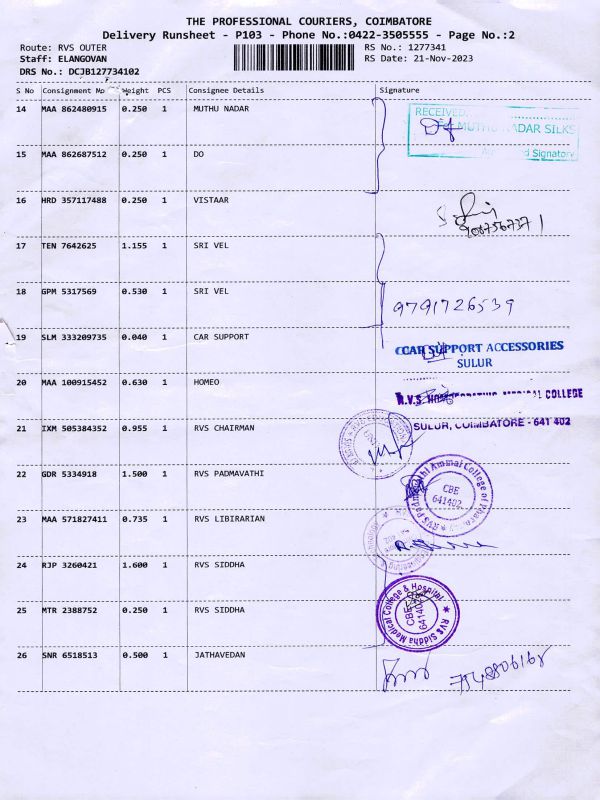 THE PROFESSIONAL COURIERS, COIMBATORE
Delivery Runsheet - P103 - Phone No.:0422-3505555 - Page No.:2
Route: RVS OUTER
RS No.: 1277341
Staff: ELANGOVAN
RS Date: 21-Nov-2023
DRS No.: DCJB127734102
S No Consignment No Weight PCS Consignee Details Signature
14 MAA 862480915 0.250 1 MUTHU NADAR
RECEIVED
MUTHU NADAR SILKS
Signatory
15 MAA 862687512 0.250 1 DO
16 HRD 357117488 0.250 1 VISTAAR
17 TEN 7642625 1.155 1 SRI VEL
18 GPM 5317569 0.530 1 SRI VEL
9791726539
19 SLM 333209735 0.040 1 CAR SUPPORT
CAR SUPPORT ACCESSORIES
SULUR
20 MAA 100915452 0.630 1 HOMEO
R.V.S. HOMOEOPATHIC MEDICAL COLLEGE
SULUR, COIMBATORE - 641 402
21 IXM 505384352 0.955 1 RVS CHAIRMAN
22 GDR 5334918 1.500 1 RVS PADMAVATHI
CBE
641402
23 MAA 571827411 0.735 1 RVS LIBIRARIAN
24 RJP 3260421 1.600 1 RVS SIDDHA
25 MTR 2388752 0.250 1 RVS SIDDHA
RVS Siddha Medical College & Hospital
CBE
641402
26 SNR 6518513 0.500 1 JATHAVEDAN